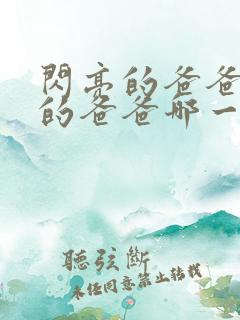 閃亮的爸爸
的爸爸那一
聽弦斷
未經同意禁止轉載